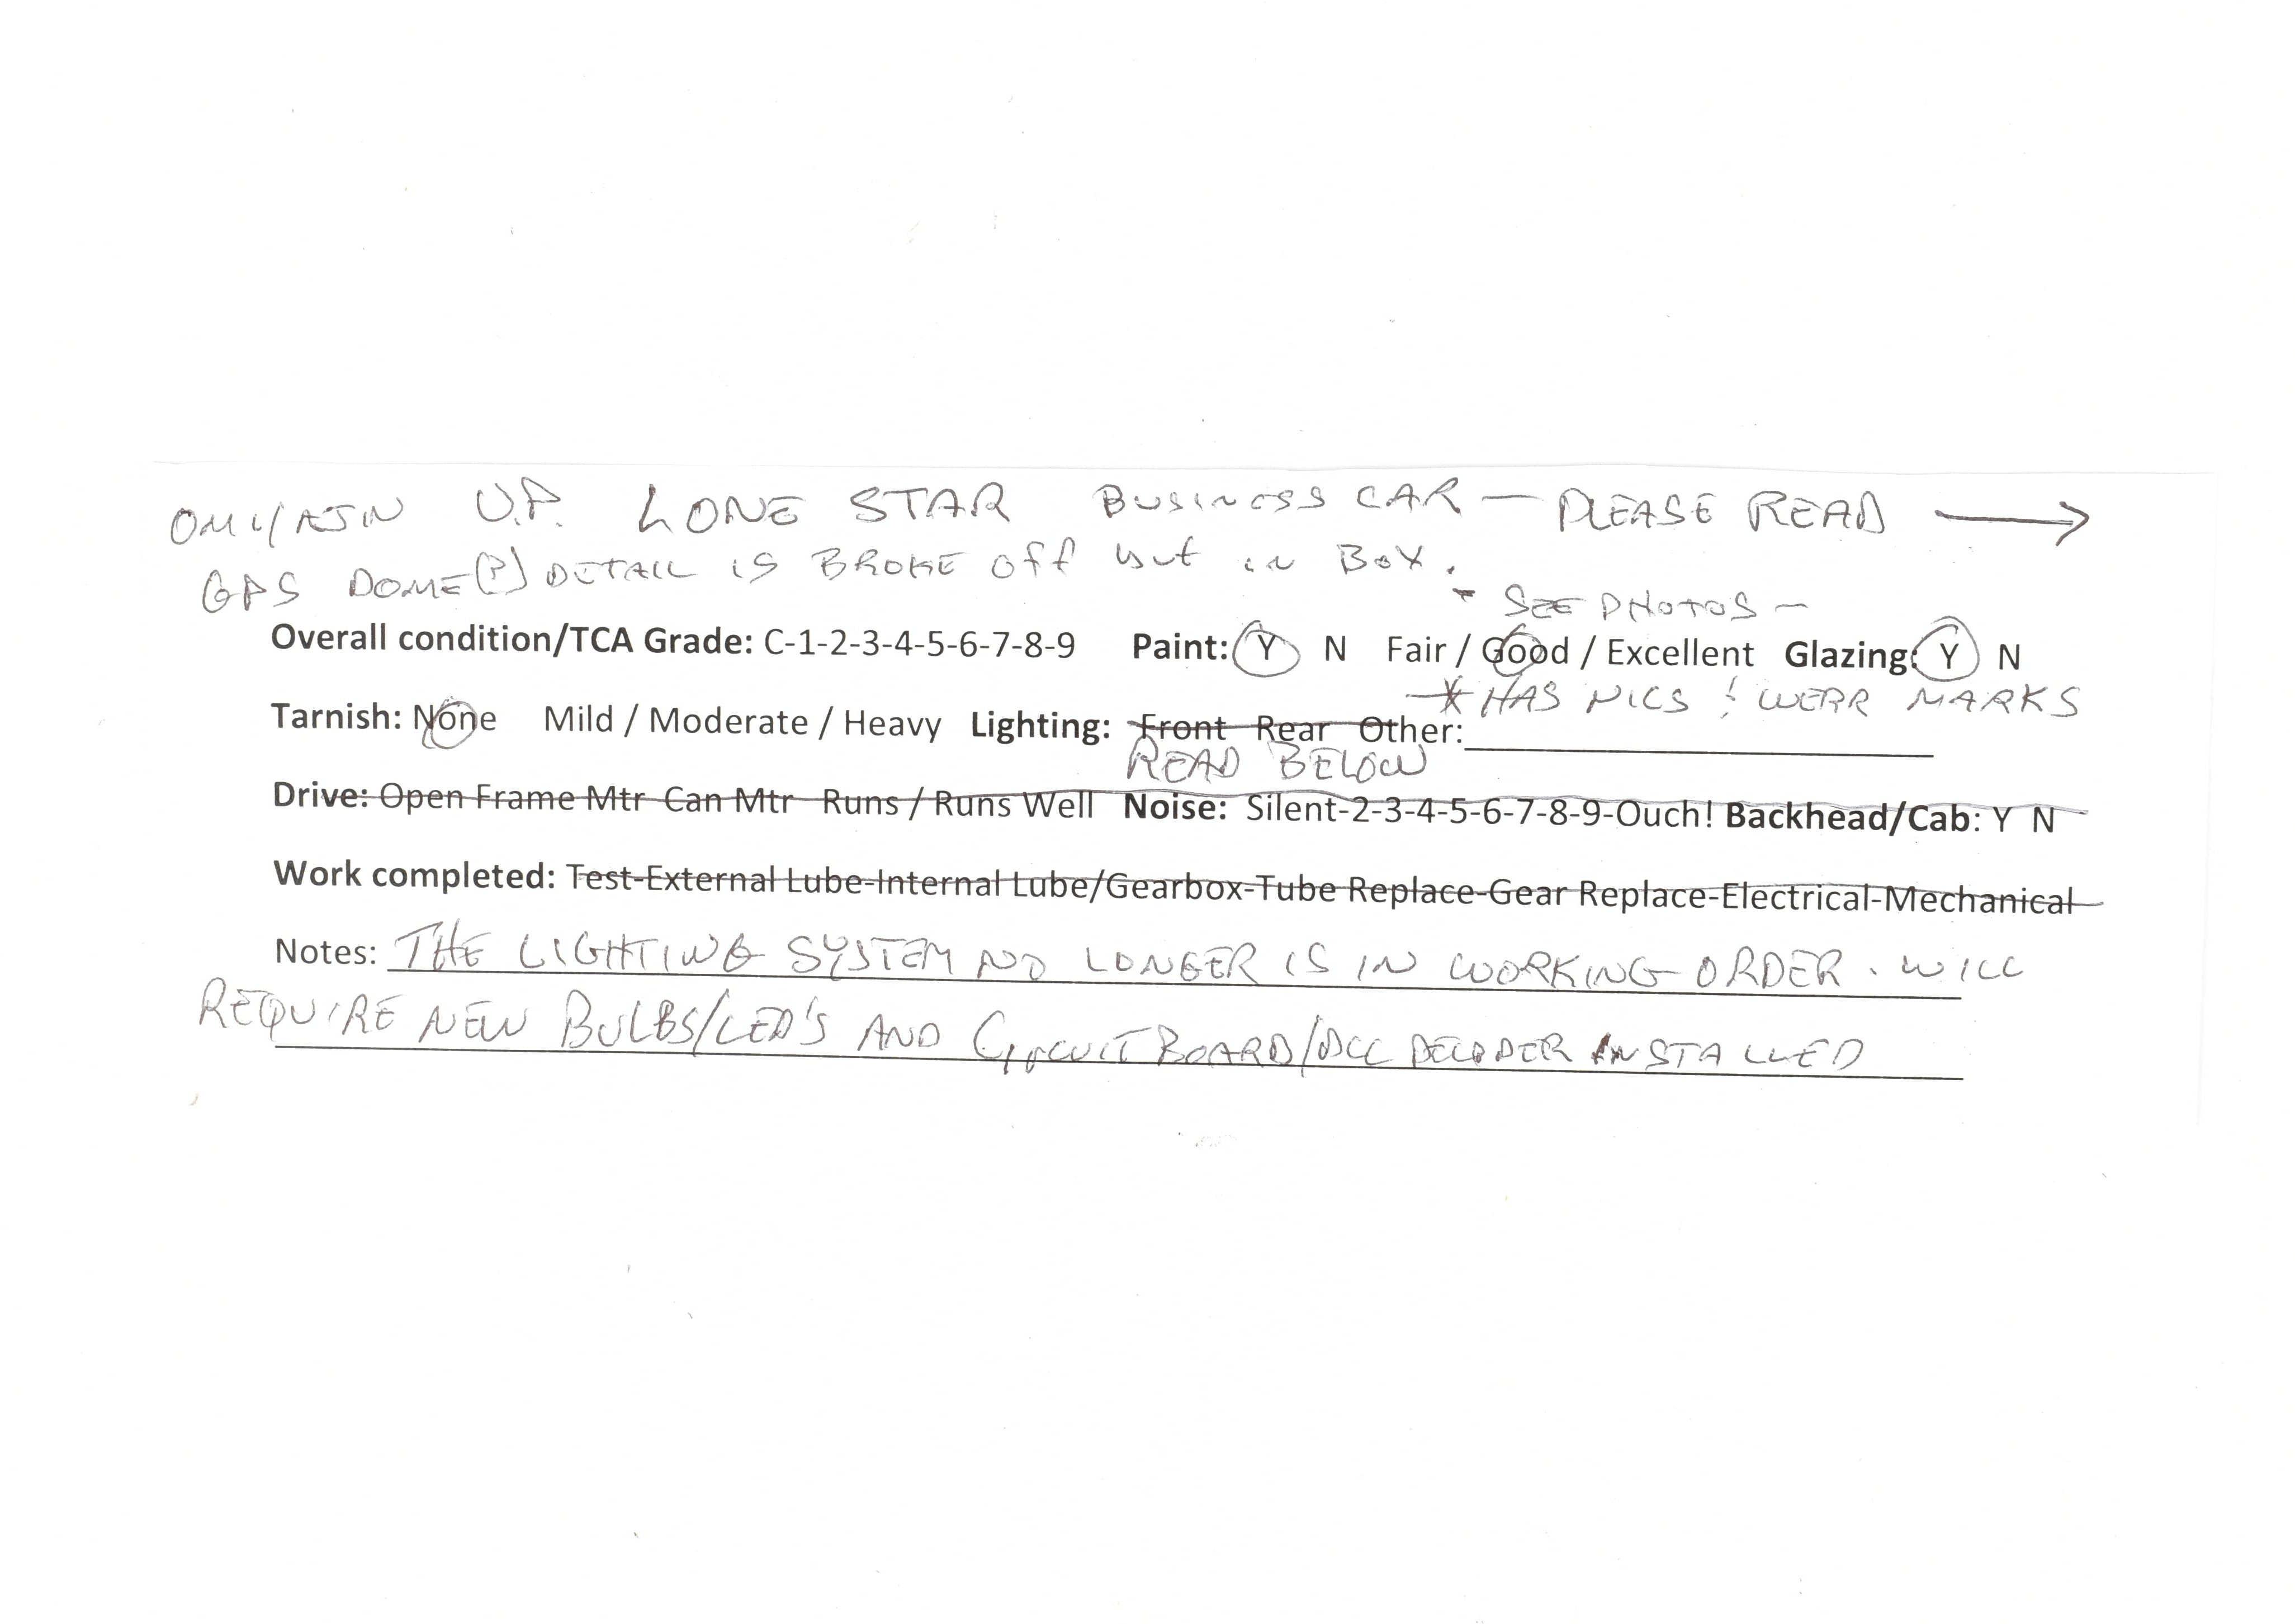 OMI/AJIN U.P. LONE STAR BUSINESS CAR — PLEASE READ →
GPS DOME(?) DETAIL IS BROKE OFF but in BOX.
- SEE PHOTOS -
Overall condition/TCA Grade: C-1-2-3-4-5-6-7-8-9 Paint: Y N Fair / Good / Excellent Glazing: Y N
* HAS NICS & WEAR MARKS
Tarnish: None Mild / Moderate / Heavy Lighting: Front Rear Other:
READ BELOW
Drive: Open Frame Mtr Can Mtr Runs / Runs Well Noise: Silent-2-3-4-5-6-7-8-9-Ouch! Backhead/Cab: Y N
Work completed: Test-External Lube-Internal Lube/Gearbox-Tube Replace-Gear Replace-Electrical-Mechanical
Notes: THE LIGHTING SYSTEM NO LONGER IS IN WORKING ORDER. WILL
REQUIRE NEW BULBS/LED'S AND CIRCUIT BOARD/DCC DECODER INSTALLED